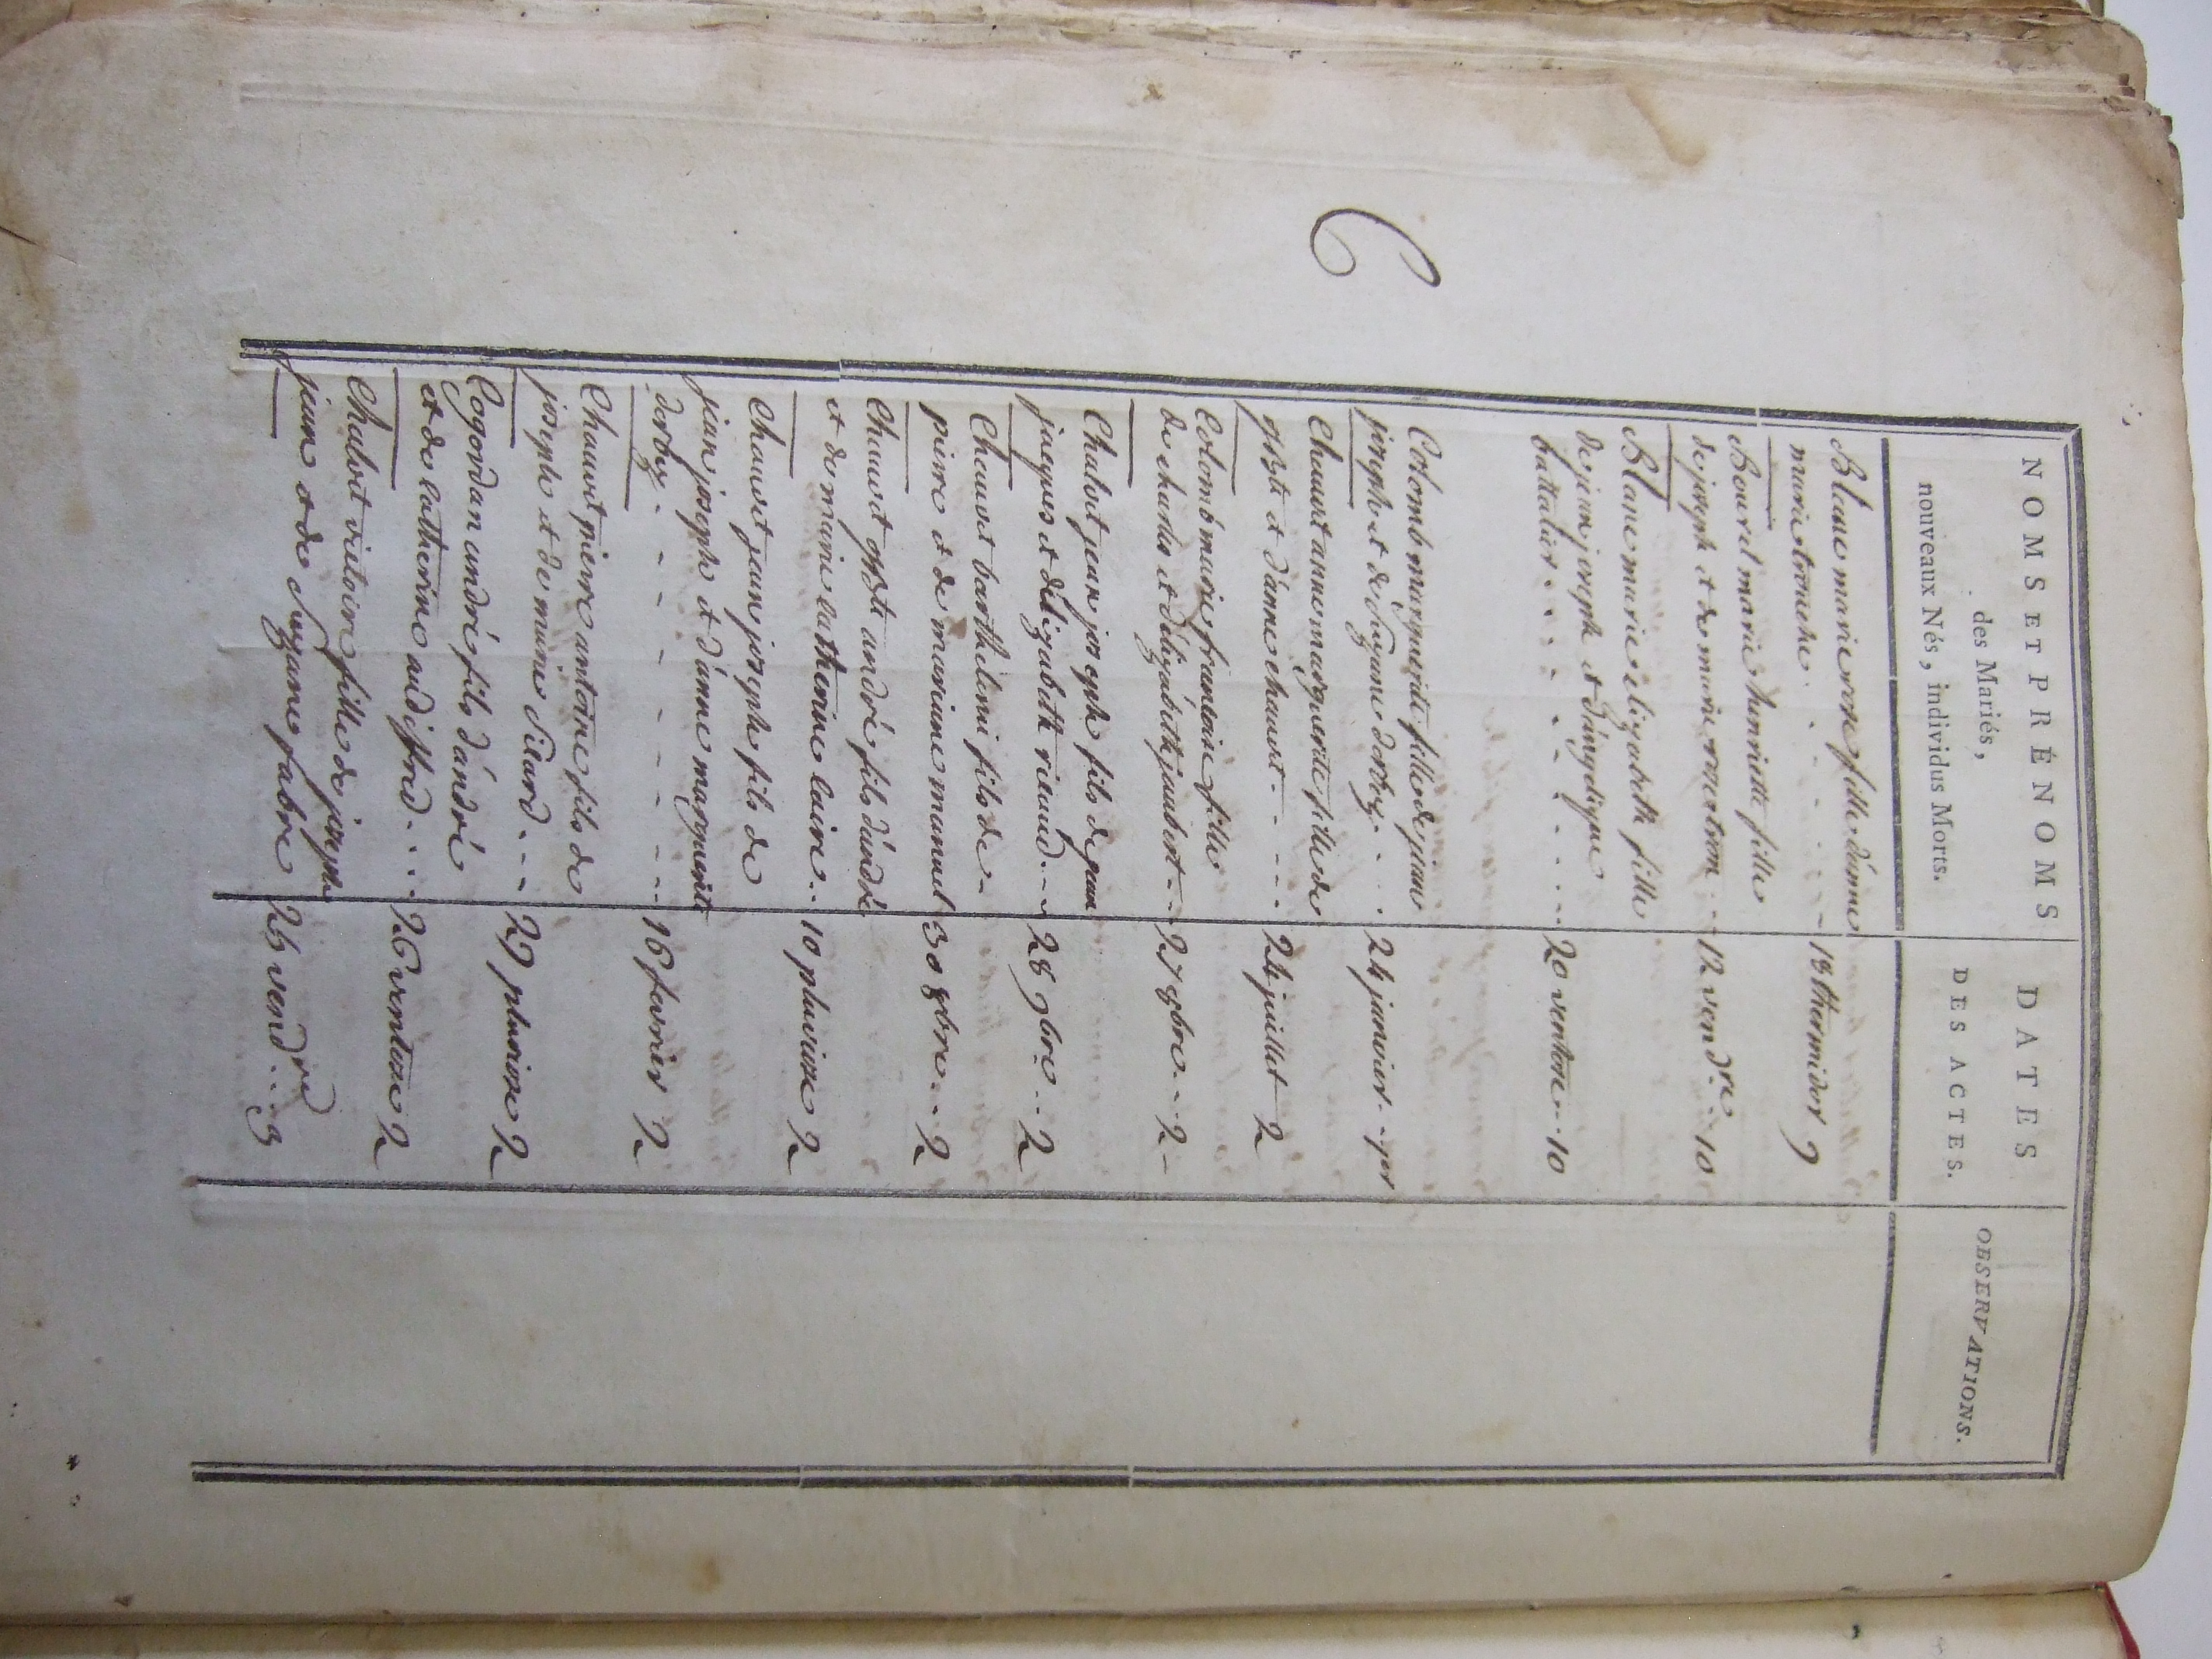 NOMS ET PRÉNOMS
des Mariés,
nouveaux Nés, individus Morts.
DATES
DES ACTES.
OBSERVATIONS.
Blanc marie rose fille d'ánne
marie tronche . . . . . . 18 thermidor 9
Bourel marie henriette fille
de joseph et de marie . . 12 vend.re . 10
Blanc marie elizabeth fille
de jean joseph et d'ángelique
battalier . . . . . . . . . 20 ventose . . 10
C
Colomb marguerite fille de jean
joseph et de suzanne dorbey . . . 24 janvier . per
Chauvet anne marguerite fille de
et d'ánne chauvet . . . . 24 juillet 2
Colomb marie francoise fille
de charles et d'élizabeth jaubert . . 27 8bre . . 2
Chabot jean joseph fils de jean
jacques et d'élizabeth . . . 28 9bre . . 2
Chauvet barthelemi fils de
pierre et de marianne manuel 30 8bre . . 2
Chauvet andré fils d'ándré
et de marie catherine caire . . 10 pluviose 2
Chauvet jean joseph fils de
jean joseph et d'ánne marguerite
dorbey . . . . . . . . . 16 fevrier 2
Chauvet pierre antoine fils de
joseph et de marie . . . 29 pluviose 2
Cogordan andré fils d'ándré
et de catherine audiffred . . . 26 ventose 2
Chabot victoire fille de joseph
jean et de Suzanne fabre 25 vend.re . . 3